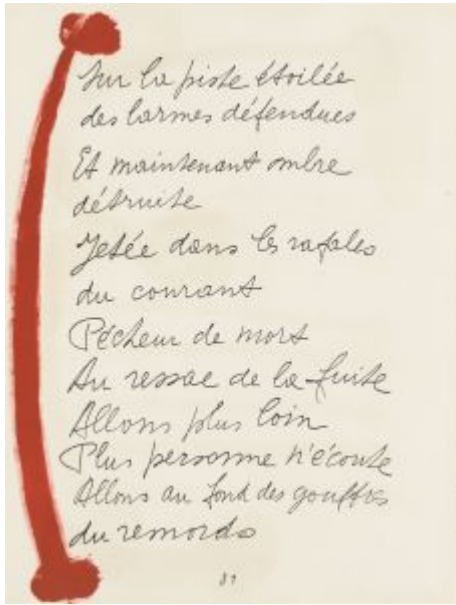 Sur la piste étoilée
des larmes défendues
Et maintenant ombre
détruite
Jetée dans les rafales
du courant
Pécheur de mort
Au ressac de la fuite
Allons plus loin
Plus personne n'écoute
Allons au fond des gouffres
du remords
81